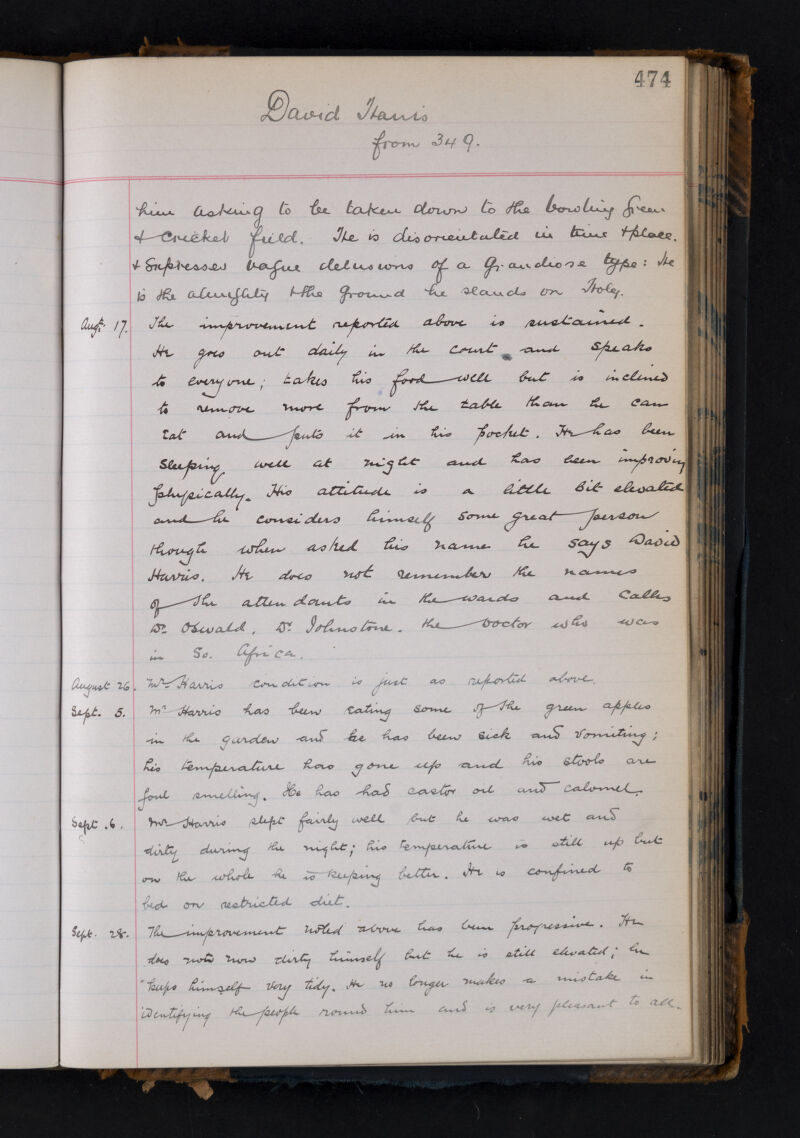 474
David Harris
from 349.
him asking to be taken down to the bowling green
& cricket field. He is disorientated in time & place.
& expresses vague delusions of a grandiose type: He
is the almighty & the ground he stands on Holy.
Augt. 17. The improvement reported above is sustained.
He goes out daily in the court and speaks
to everyone; takes his food well but is inclined
to remove more from the table than he can
eat and puts it in his pocket. He has been
sleeping well at night and has been improving
physically. His attitude is a little bit elevated
and he considers himself some great person
though when asked his name he says David
Harris. He does not remember the names
of the attendants in the wards and calls
Dr. Oswald, Dr. Johnstone. the Doctor who was
in So. Africa.
August 26. Mr. Harris condition is just as reported above.
Sept. 5. Mr Harris has been eating some of the green apples
in the garden and he has been sick and vomiting;
his temperature has gone up and his stools are
foul smelling. He has had castor oil and calomel.
Sept. 6. Mr Harris slept fairly well but he was wet and
dirty during the night; his temperature is still up but
on the whole he is keeping better. He is confined to
bed on restricted diet.
Sept. 28. The improvement noted above has been progressive. He
does not now dirty himself but he is still elevated; he
keeps himself very tidy. He no longer makes a mistake in
identifying the people round him and is very pleasant to all.